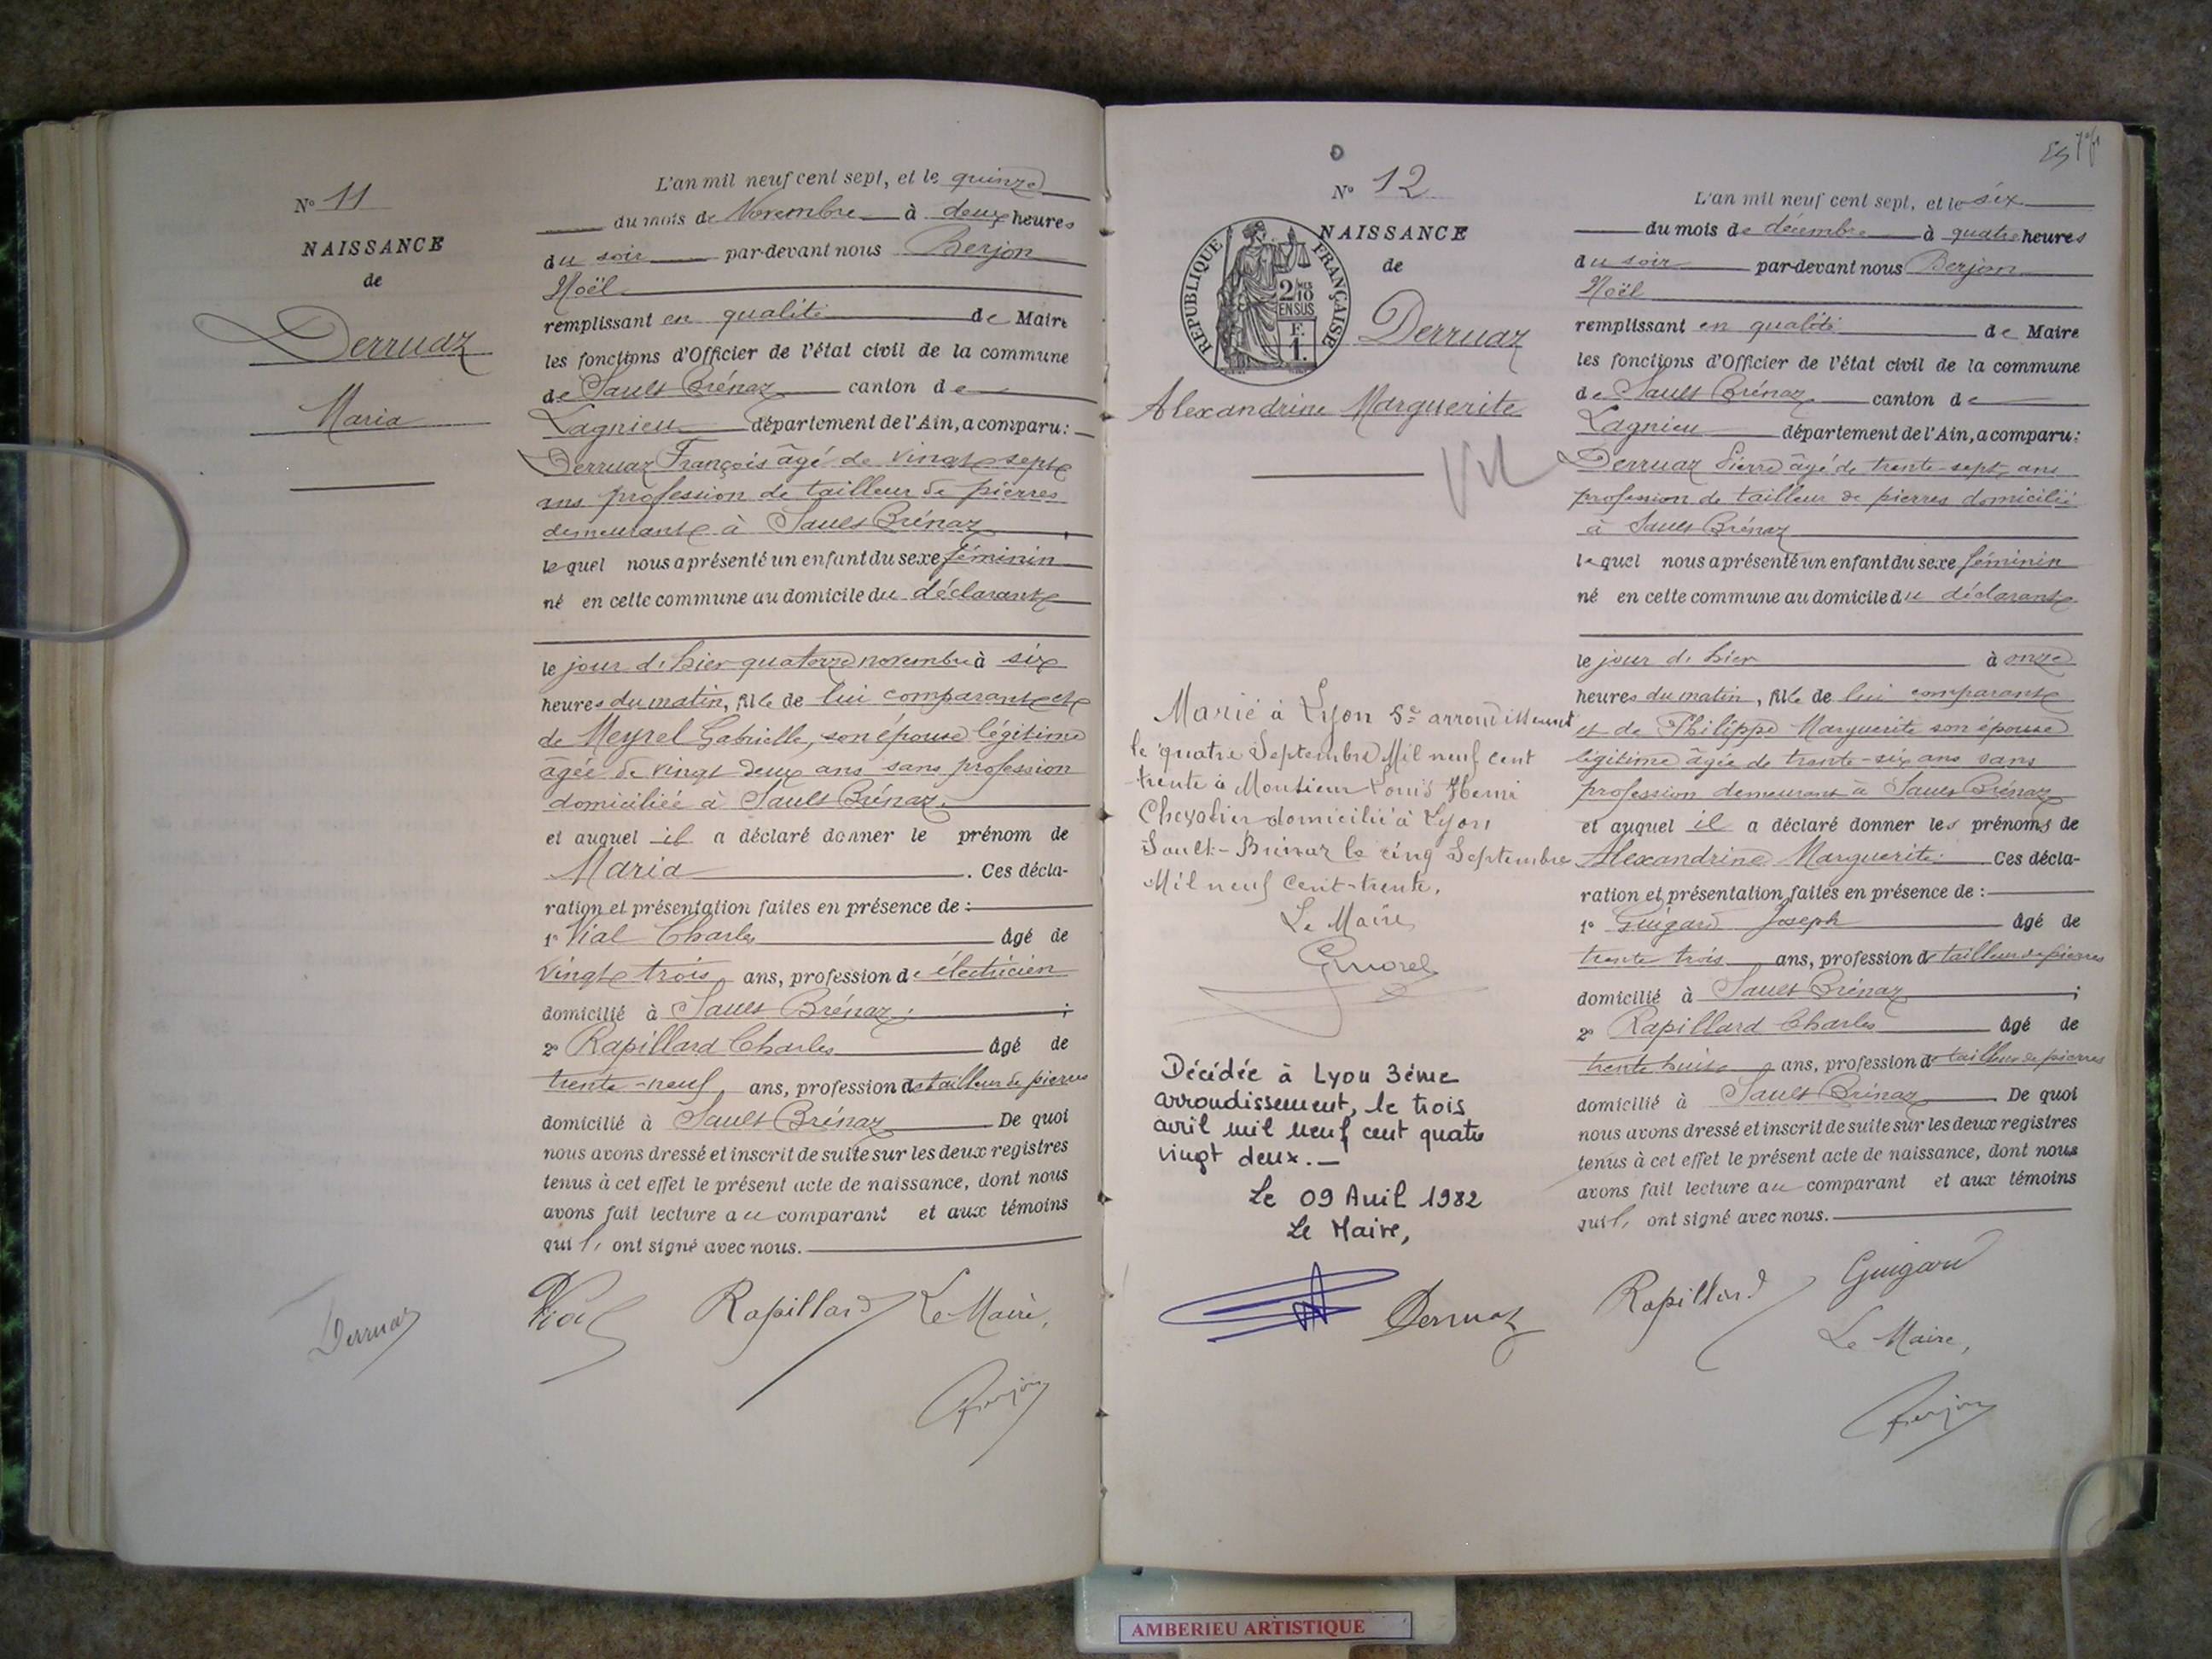 N° 11
NAISSANCE
de
Derruaz
Maria
L'an mil neuf cent sept, et le quinze
du mois de Novembre à deux heures
du soir par-devant nous Berjon
Noël
remplissant en qualité de Maire
les fonctions d'Officier de l'état civil de la commune
de Sault Brénaz canton de
Lagnieu département de l'Ain, a comparu:
Derruaz François âgé de vingt sept
ans profession de tailleur de pierres
demeurant à Sault Brénaz,
lequel nous a présenté un enfant du sexe féminin
né en cette commune au domicile du déclarant
le jour d'hier quatorze novembre à six
heures du matin, fille de lui comparant et
de Meyrel Gabrielle, son épouse légitime
âgée de vingt deux ans sans profession
domiciliée à Sault Brénaz.
et auquel il a déclaré donner le prénom de
Maria. Ces décla-
ration et présentation faites en présence de:
1° Vial Charles âgé de
vingt trois ans, profession de électricien
domicilié à Sault Brénaz;
2° Rapillard Charles âgé de
trente-neuf ans, profession de tailleur de pierres
domicilié à Sault Brénaz De quoi
nous avons dressé et inscrit de suite sur les deux registres
tenus à cet effet le présent acte de naissance, dont nous
avons fait lecture au comparant et aux témoins
qu'ils ont signé avec nous.
Derruaz Vial Rapillard Le Maire,
Berjon
N° 12
NAISSANCE
de
RÉPUBLIQUE FRANÇAISE
2/10 MES
EN SUS
F.
1.
Derruaz
Alexandrine Marguerite
Vu
Marié à Lyon 5e arrondissement
le quatre Septembre Mil neuf cent
trente à Monsieur Louis Henri
Chevalier domicilié à Lyon
Sault-Brénaz le cinq Septembre
Mil neuf cent-trente.
Le Maire
Décédée à Lyon 3ème
arrondissement, le trois
avril mil neuf cent quatre
vingt deux.-
Le 09 Avril 1982
Le Maire,
L'an mil neuf cent sept, et le six
du mois de décembre à quatre heures
du soir par-devant nous Berjon
Noël
remplissant en qualité de Maire
les fonctions d'Officier de l'état civil de la commune
de Sault Brénaz canton de
Lagnieu département de l'Ain, a comparu:
Derruaz Pierre âgé de trente-sept ans
profession de tailleur de pierres domicilié
à Sault Brénaz
lequel nous a présenté un enfant du sexe féminin
né en cette commune au domicile du déclarant
le jour d'hier à onze
heures du matin, fille de lui comparant
et de Philippe Marguerite son épouse
légitime âgée de trente-six ans sans
profession demeurant à Sault Brénaz
et auquel il a déclaré donner les prénoms de
Alexandrine Marguerite. Ces décla-
ration et présentation faites en présence de:
1° Guigard Joseph âgé de
trente trois ans, profession de tailleur de pierres
domicilié à Sault Brénaz;
2° Rapillard Charles âgé de
trente huit ans, profession de tailleur de pierres
domicilié à Sault Brénaz De quoi
nous avons dressé et inscrit de suite sur les deux registres
tenus à cet effet le présent acte de naissance, dont nous
avons fait lecture au comparant et aux témoins
qu'ils ont signé avec nous.
Derruaz Rapillard Guigard
Le Maire,
Berjon
AMBERIEU ARTISTIQUE